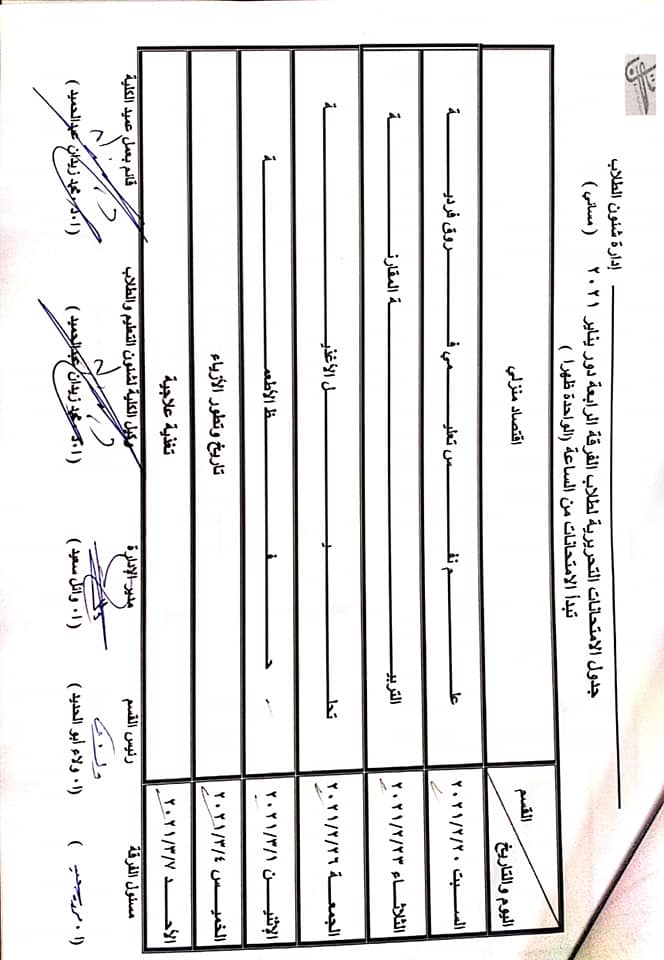 إدارة شئون الطلاب
جدول الامتحانات التحريرية لطلاب الفرقة الرابعة دور يناير ٢٠٢١ ( مسائي )
تبدأ الامتحانات من الساعة (الواحدة ظهرا )
القسم
اليوم والتاريخ
اقتصاد منزلي
السبت ٢٠٢١/٢/٢٠ علم نفس تعليمي فروق فردية
الثلاثاء ٢٠٢١/٢/٢٣ التربية المقارنة
الجمعة ٢٠٢١/٢/٢٦ تحليل الأغذية
الإثنين ٢٠٢١/٣/١ حفظ الأطعمة
الخميس ٢٠٢١/٣/٤ تاريخ وتطور الأزياء
الأحد ٢٠٢١/٣/٧ تغذية علاجية
مسئول الفرقة رئيس القسم مدير الإدارة وكيل الكلية لشئون التعليم والطلاب قائم بعمل عميد الكلية
(أ٠ ) (أ٠ ولاء أبو الحديد ) (أ٠ وائل سعيد ) (أ٠د٠ محمد زيدان عبدالحميد ) (أ٠د٠ محمد زيدان عبدالحميد )